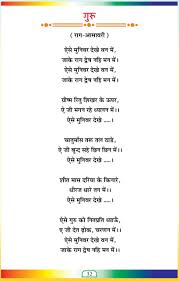 गुरु
( राग-आसावरी )
ऐसे मुनिवर देखे वन में,
जाके राग द्वेष नहि मन में।।
ऐसे मुनिवर देखे वन में,
जाके राग द्वेष नहि मन में।।
ग्रीष्म रितु शिखर के ऊपर,
ऐ जी मगन रहे ध्यानन में।।
ऐसे मुनिवर देखे ....।
चातुर्मास तरू तल ठाडे,
ऐ जी बुन्द सहे छिन छिन में।।
ऐसे मुनिवर देखे ....।
शीत मास दरिया के किनारे,
धीरज धारे तन में।।
ऐसे मुनिवर देखे ....।
ऐसे गुरु को नितप्रति ध्याऊँ,
ऐ जी देत ढोक, चरणन में।।
ऐसे मुनिवर देखे वन में,
जाके राग द्वेष नहि मन में।।
12